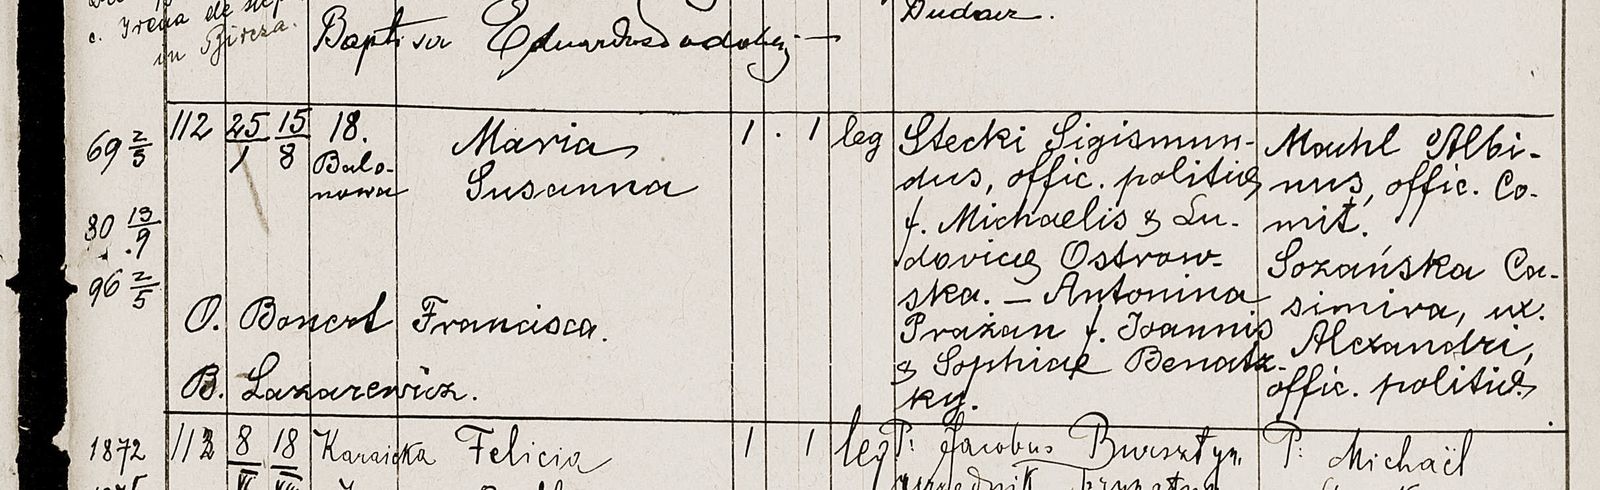 c. Irena de
in Bircza.
Baptisavit Eduardus
Dudarz.
69 2/5
80 13/9
96 2/5
112 25/1 15/8 18. Balonowa
Maria
Susanna
1 . 1 leg
Stecki Sigismun-
dus, offic. politicus
f. Michaelis & Lu-
dovicae Ostrow-
ska. — Antonina
Prażan f. Joannis
& Sophiae Benatz-
ky.
Machl Albi-
nus, offic. Co-
mit.
Sozańska Ca-
simira, ux.
Alexandri,
offic. politici
O. Bonert Francisca.
B. Lazarewicz.
1872
113 8/VI 18 Felicia
1 1 leg
P: Jacobus Bursztyn
P: Michaël